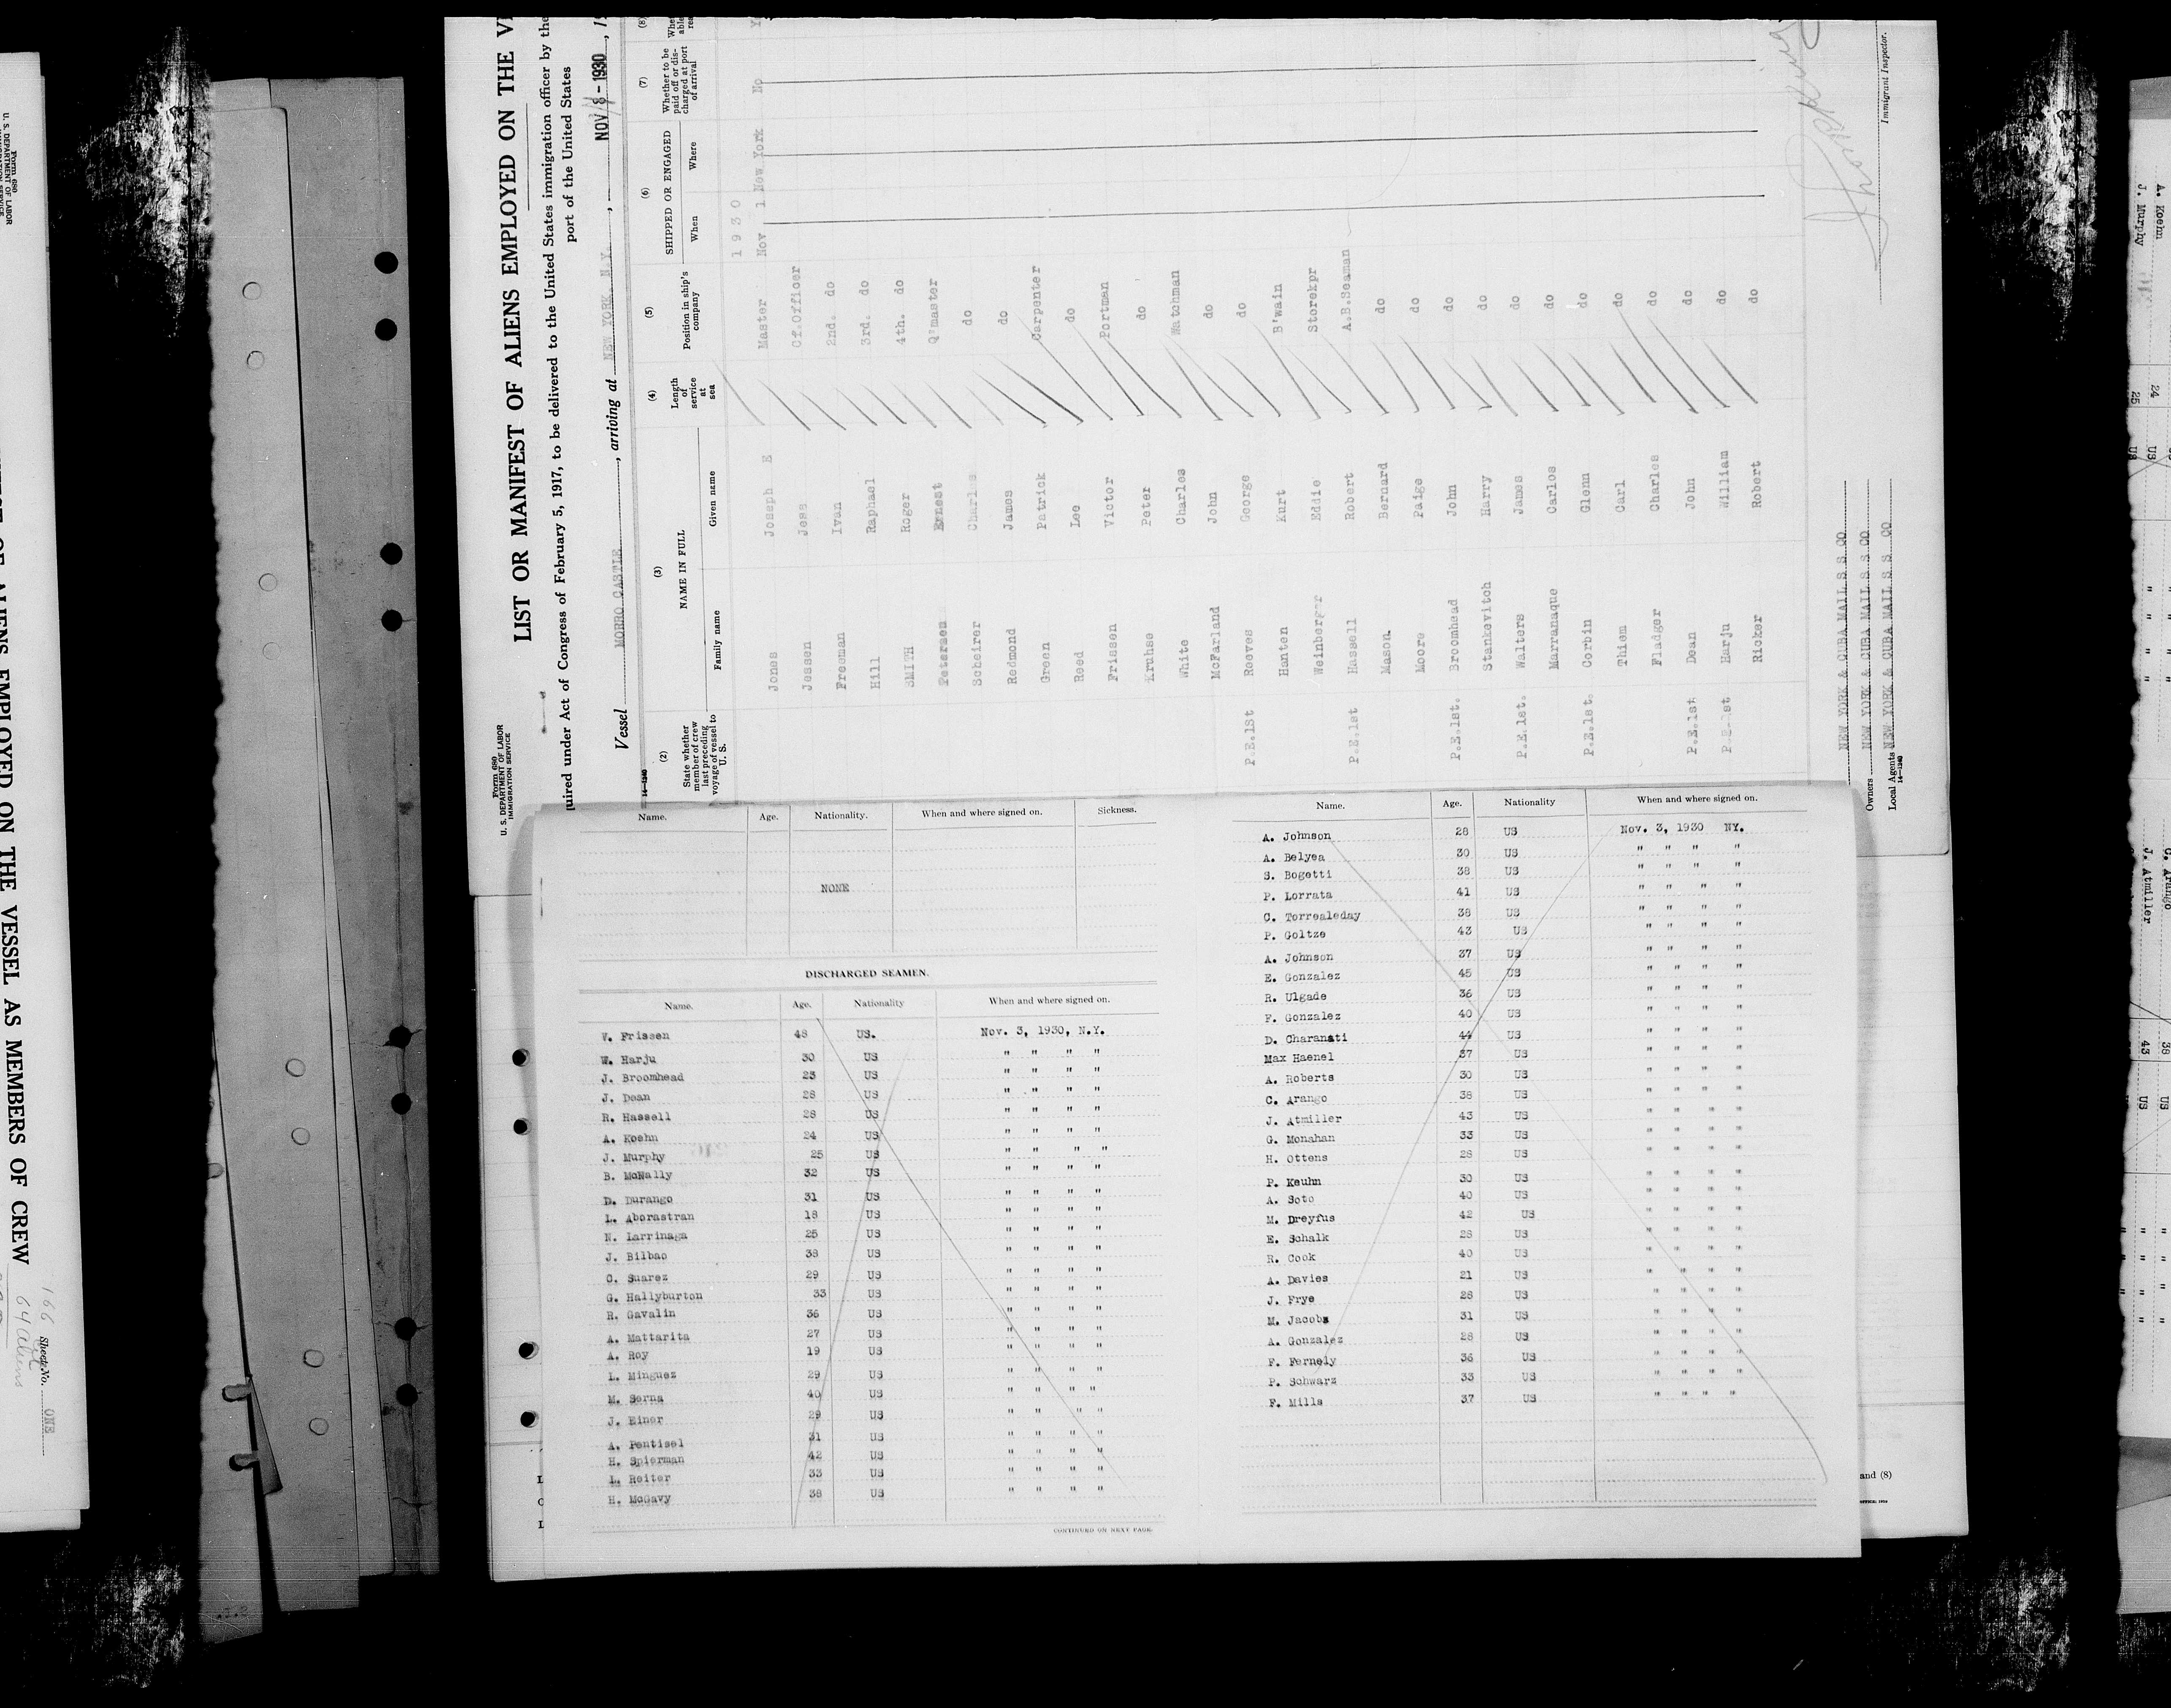 Form 680
U. S. DEPARTMENT OF LABOR
IMMIGRATION SERVICE
LIST OR MANIFEST OF ALIENS EMPLOYED ON THE
uired under Act of Congress of February 5, 1917, to be delivered to the United States immigration officer by the
port of the United States
Vessel MORRO CASTLE, arriving at NEW YORK N.Y., NOV 8-1930
(2) (3) (4) (5) (6) (7) (8)
State whether member of crew last preceding voyage of vessel to U. S.
NAME IN FULL
Family name Given name
Length of service at sea
Position in ship's company
SHIPPED OR ENGAGED
When Where
Whether to be paid off or discharged at port of arrival
1930
Jones Joseph E Master Nov 1 New York No
Jessen Jess Cf.Officer
Freeman Ivan 2nd. do
Hill Raphael 3rd. do
SMITH Roger 4th. do
Petersen Ernest Q'master
Scheirer Charles do
Redmond James do
Green Patrick Carpenter
Reed Lee do
Frissen Victor Portman
Kruhse Peter do
White Charles Watchman
McFarland John do
P.E.1St Reeves George do
Hanten Kurt B'wain
Weinberger Eddie Storekpr
P.E.1st Hassell Robert A.B.Seaman
Mason Bernard do
Moore Paige do
P.E.1st. Broomhead John do
Stankevitch Harry do
P.E.1st. Walters James do
Marranaque Carlos do
P.E.1st. Corbin Glenn do
Thiem Carl do
Fladger Charles do
P.E.1st Dean John do
P.E.1st Harju William do
Ricker Robert do
NEW YORK & CUBA MAIL S S CO
Owners NEW YORK & CUBA MAIL S S CO
Local Agents NEW YORK & CUBA MAIL S S CO
14—1240
Immigrant Inspector.
Name. Age. Nationality. When and where signed on. Sickness.
NONE
DISCHARGED SEAMEN.
Name. Age. Nationality When and where signed on.
V. Frissen 48 US. Nov. 3, 1930, N.Y.
W. Harju 30 US " " " "
J. Broomhead 23 US " " " "
J. Dean 28 US " " " "
R. Hassell 28 US " " " "
A. Koehn 24 US " " " "
J. Murphy 25 US " " " "
B. McNally 32 US " " " "
D. Durango 31 US " " " "
L. Aborastran 18 US " " " "
N. Larrinaga 25 US " " " "
J. Bilbao 38 US " " " "
C. Suarez 29 US " " " "
G. Hallyburton 33 US " " " "
R. Gavalin 36 US " " " "
A. Mattarita 27 US " " " "
A. Roy 19 US " " " "
L. Minguez 29 US " " " "
M. Serna 40 US " " " "
J. Einer 29 US " " " "
A. Pentisel 31 US " " " "
H. Spierman 42 US " " " "
L. Reiter 33 US " " " "
H. McGavy 38 US " " " "
CONTINUED ON NEXT PAGE.
Name. Age. Nationality When and where signed on.
A. Johnson 28 US Nov. 3, 1930 NY.
A. Belyea 30 US " " " "
S. Bogetti 38 US " " " "
P. Lorrata 41 US " " " "
C. Torrealeday 38 US " " " "
P. Goltze 43 US " " " "
A. Johnson 37 US " " " "
E. Gonzalez 45 US " " " "
R. Ulgade 36 US " " " "
F. Gonzalez 40 US " " " "
D. Charanati 44 US " " " "
Max Haenel 37 US " " " "
A. Roberts 30 US " " " "
C. Arango 38 US " " " "
J. Atmiller 43 US " " " "
G. Monahan 33 US " " " "
H. Ottens 28 US " " " "
P. Keuhn 30 US " " " "
A. Soto 40 US " " " "
M. Dreyfus 42 US " " " "
E. Schalk 28 US " " " "
R. Cook 40 US " " " "
A. Davies 21 US " " " "
J. Frye 28 US " " " "
M. Jacobs 31 US " " " "
A. Gonzalez 28 US " " " "
F. Fernely 36 US " " " "
P. Schwarz 33 US " " " "
F. Mills 37 US " " " "
and (8)
Form 680
U. S. DEPARTMENT OF LABOR
IMMIGRATION SERVICE
OF ALIENS EMPLOYED ON THE VESSEL AS MEMBERS OF CREW
166
64 aliens
Sheet No. ONE
A. Koehn 24 US
J. Murphy 25 US
C. Arango 38 US
J. Atmiller 43 US